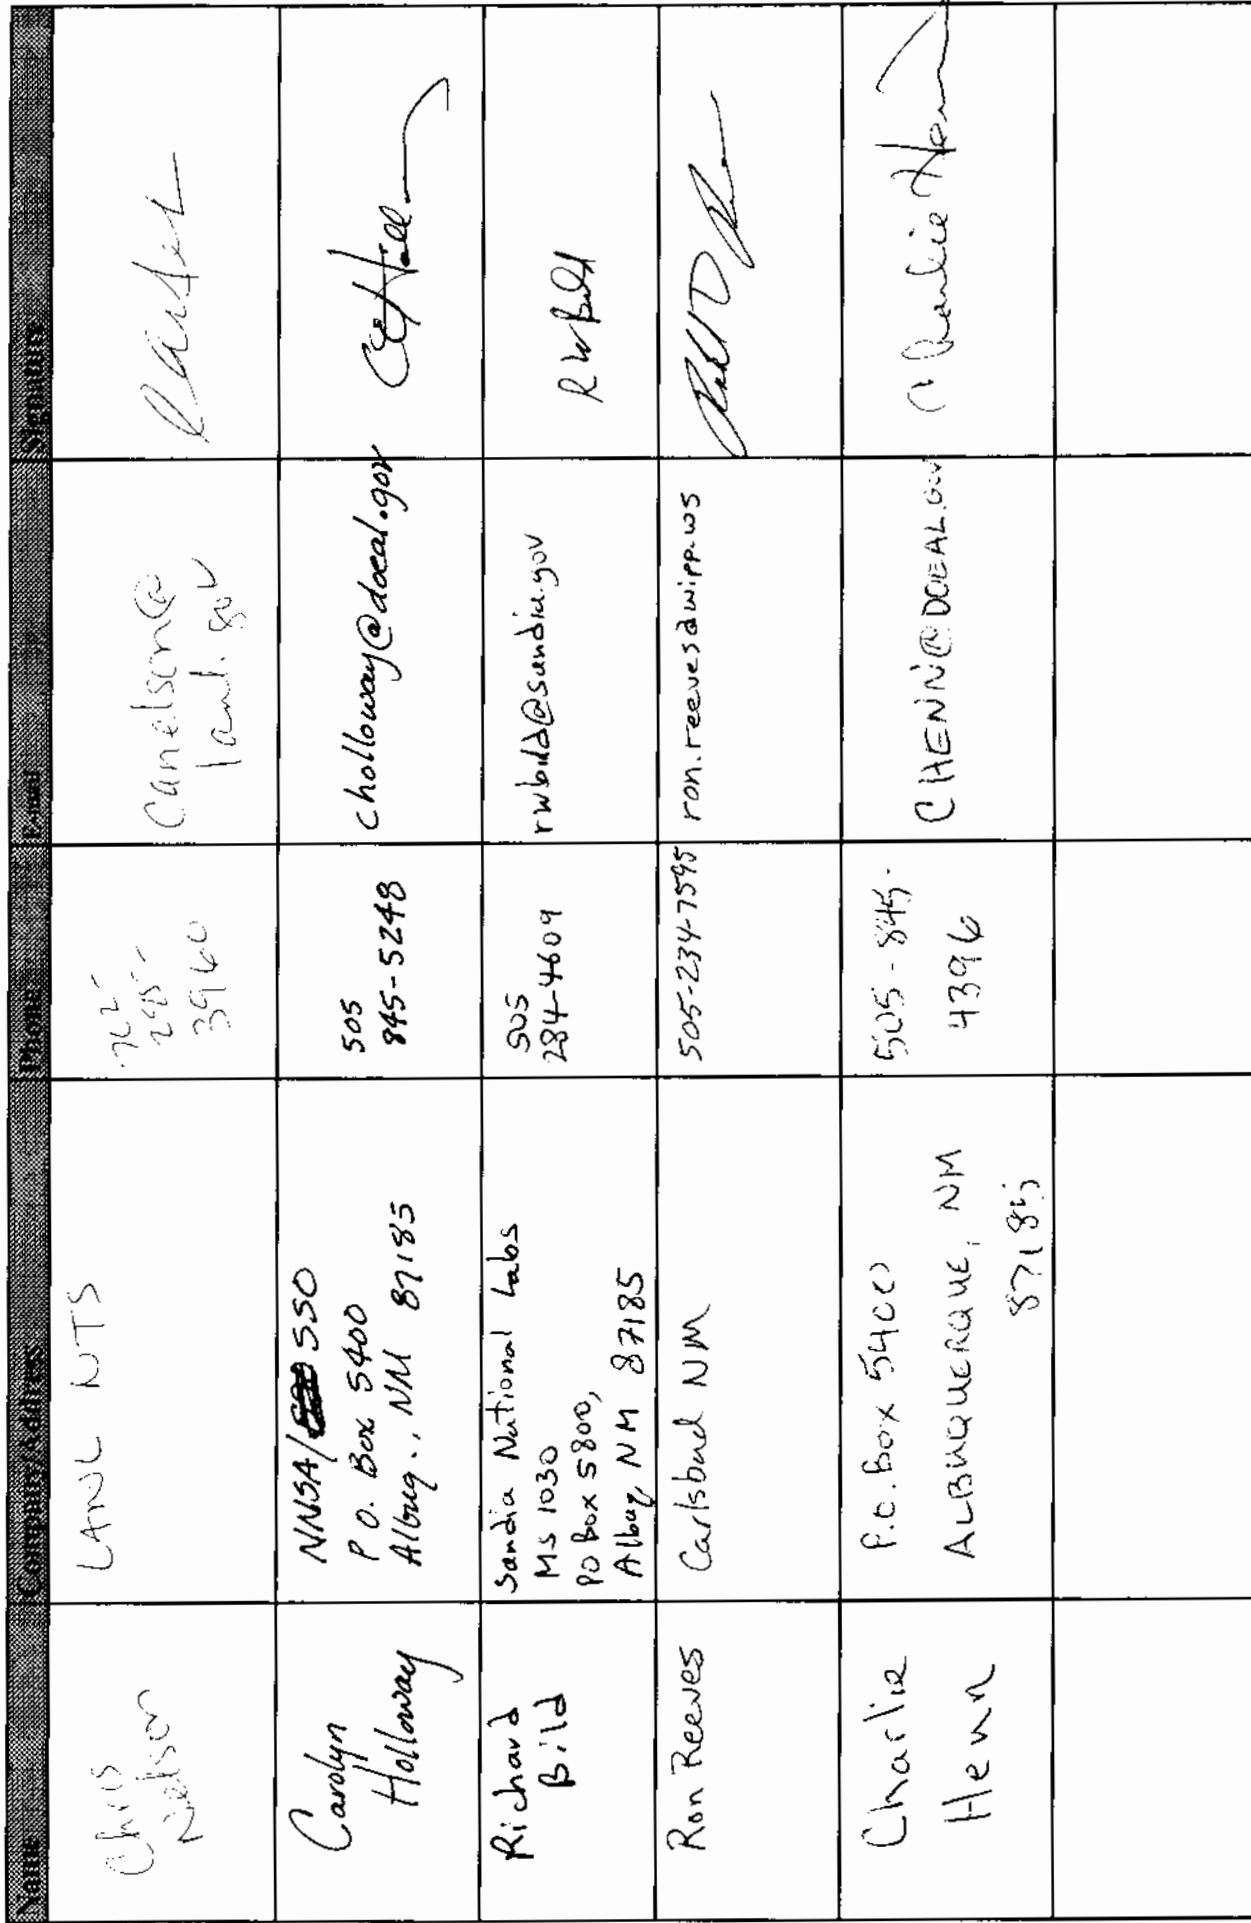 Name Company/Address Phone E-mail Signature
Chris
Nelson
LANL NTS
295-
3960
Canelson@
lanl.gov
Carolyn
Holloway
NNSA/ SSO
P O. Box 5400
Albuq., NM 87185
505
845-5248
cholloway@doeal.gov
Richard
Bild
Sandia National Labs
MS 1030
PO Box 5800,
Albuq, NM 87185
505
284-4609
rwbild@sandia.gov
RWBild
Ron Reeves
Carlsbad NM
505-234-7595
ron.reeves@wipp.ws
Charlie
Henn
P.O. Box 5400
ALBUQUERQUE, NM
87185
505-845-
4396
CHENN@DOEAL.GOV
Charlie Henn